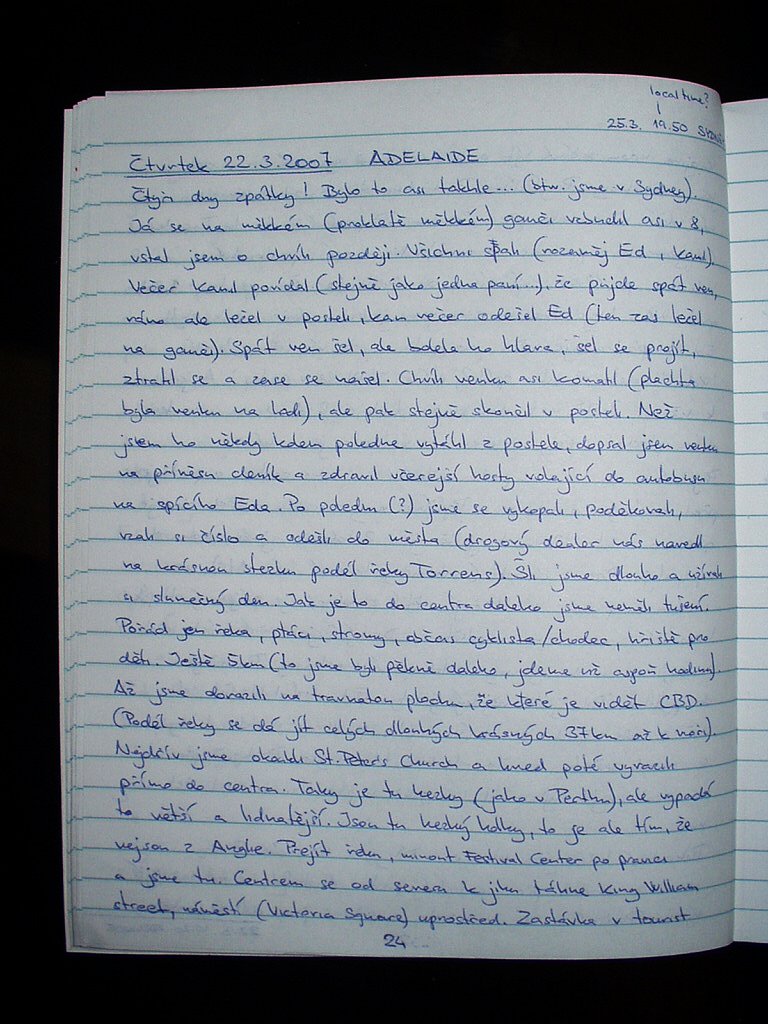 local time?
25.3. 19.50
Čtvrtek 22.3.2007 ADELAIDE
Čtyři dny zpátky! Bylo to asi takhle... (btw. jsme v Sydney).
Já se na měkkém (proklatě měkkém) gauči vzbudil asi v 8,
vstal jsem o chvíli později. Všichni spali (rozuměj Ed, Kamil).
Večer Kamil povídal (stejně jako jedna paní...), že půjde spát ven,
ráno ale ležel v posteli, kam večer odešel Ed (ten zas ležel
na gauči). Spát ven šel, ale bolela ho hlava, šel se projít,
ztratil se a zase se našel. Chvíli venku asi komatil (plachta
byla venku na lodi), ale pak stejně skončil v posteli. Než
jsem ho někdy kolem poledne vytáhl z postele, dopsal jsem venku
na příněsu deník a zdravil včerejší hosty volající do autobusu
na spícího Eda. Po poledni (?) jsme se vykopali, poděkovali,
vzali si číslo a odešli do města (drogový dealer nás navedl
na krásnou stezku podél řeky Torrens). Šli jsme dlouho a užívali
si slunečný den. Jak je to do centra daleko jsme neměli tušení.
Pořád jen řeka, ptáci, stromy, občas cyklista/chodec, hřiště pro
děti. Ještě 5km (to jsme byli pěkně daleko, jdeme už aspoň hodinu).
Až jsme dorazili na travnatou plochu, že které je vidět CBD.
(Podél řeky se dá jít celých dlouhých krásných 37km až k moři).
Nejdřív jsme okoukli St. Peter's Church a hned poté vyrazili
přímo do centra. Taky je tu hezky (jako v Perthu), ale vypadá
to větší a lidnatější. Jsou tu hezký holky, to je ale tím, že
nejsou z Anglie. Přejít řeku, minout Festival Center po pravici
a jsme tu. Centrem se od severu k jihu táhne King William
street, náměstí (Victoria Square) uprostřed. Zastávka v tourist
24